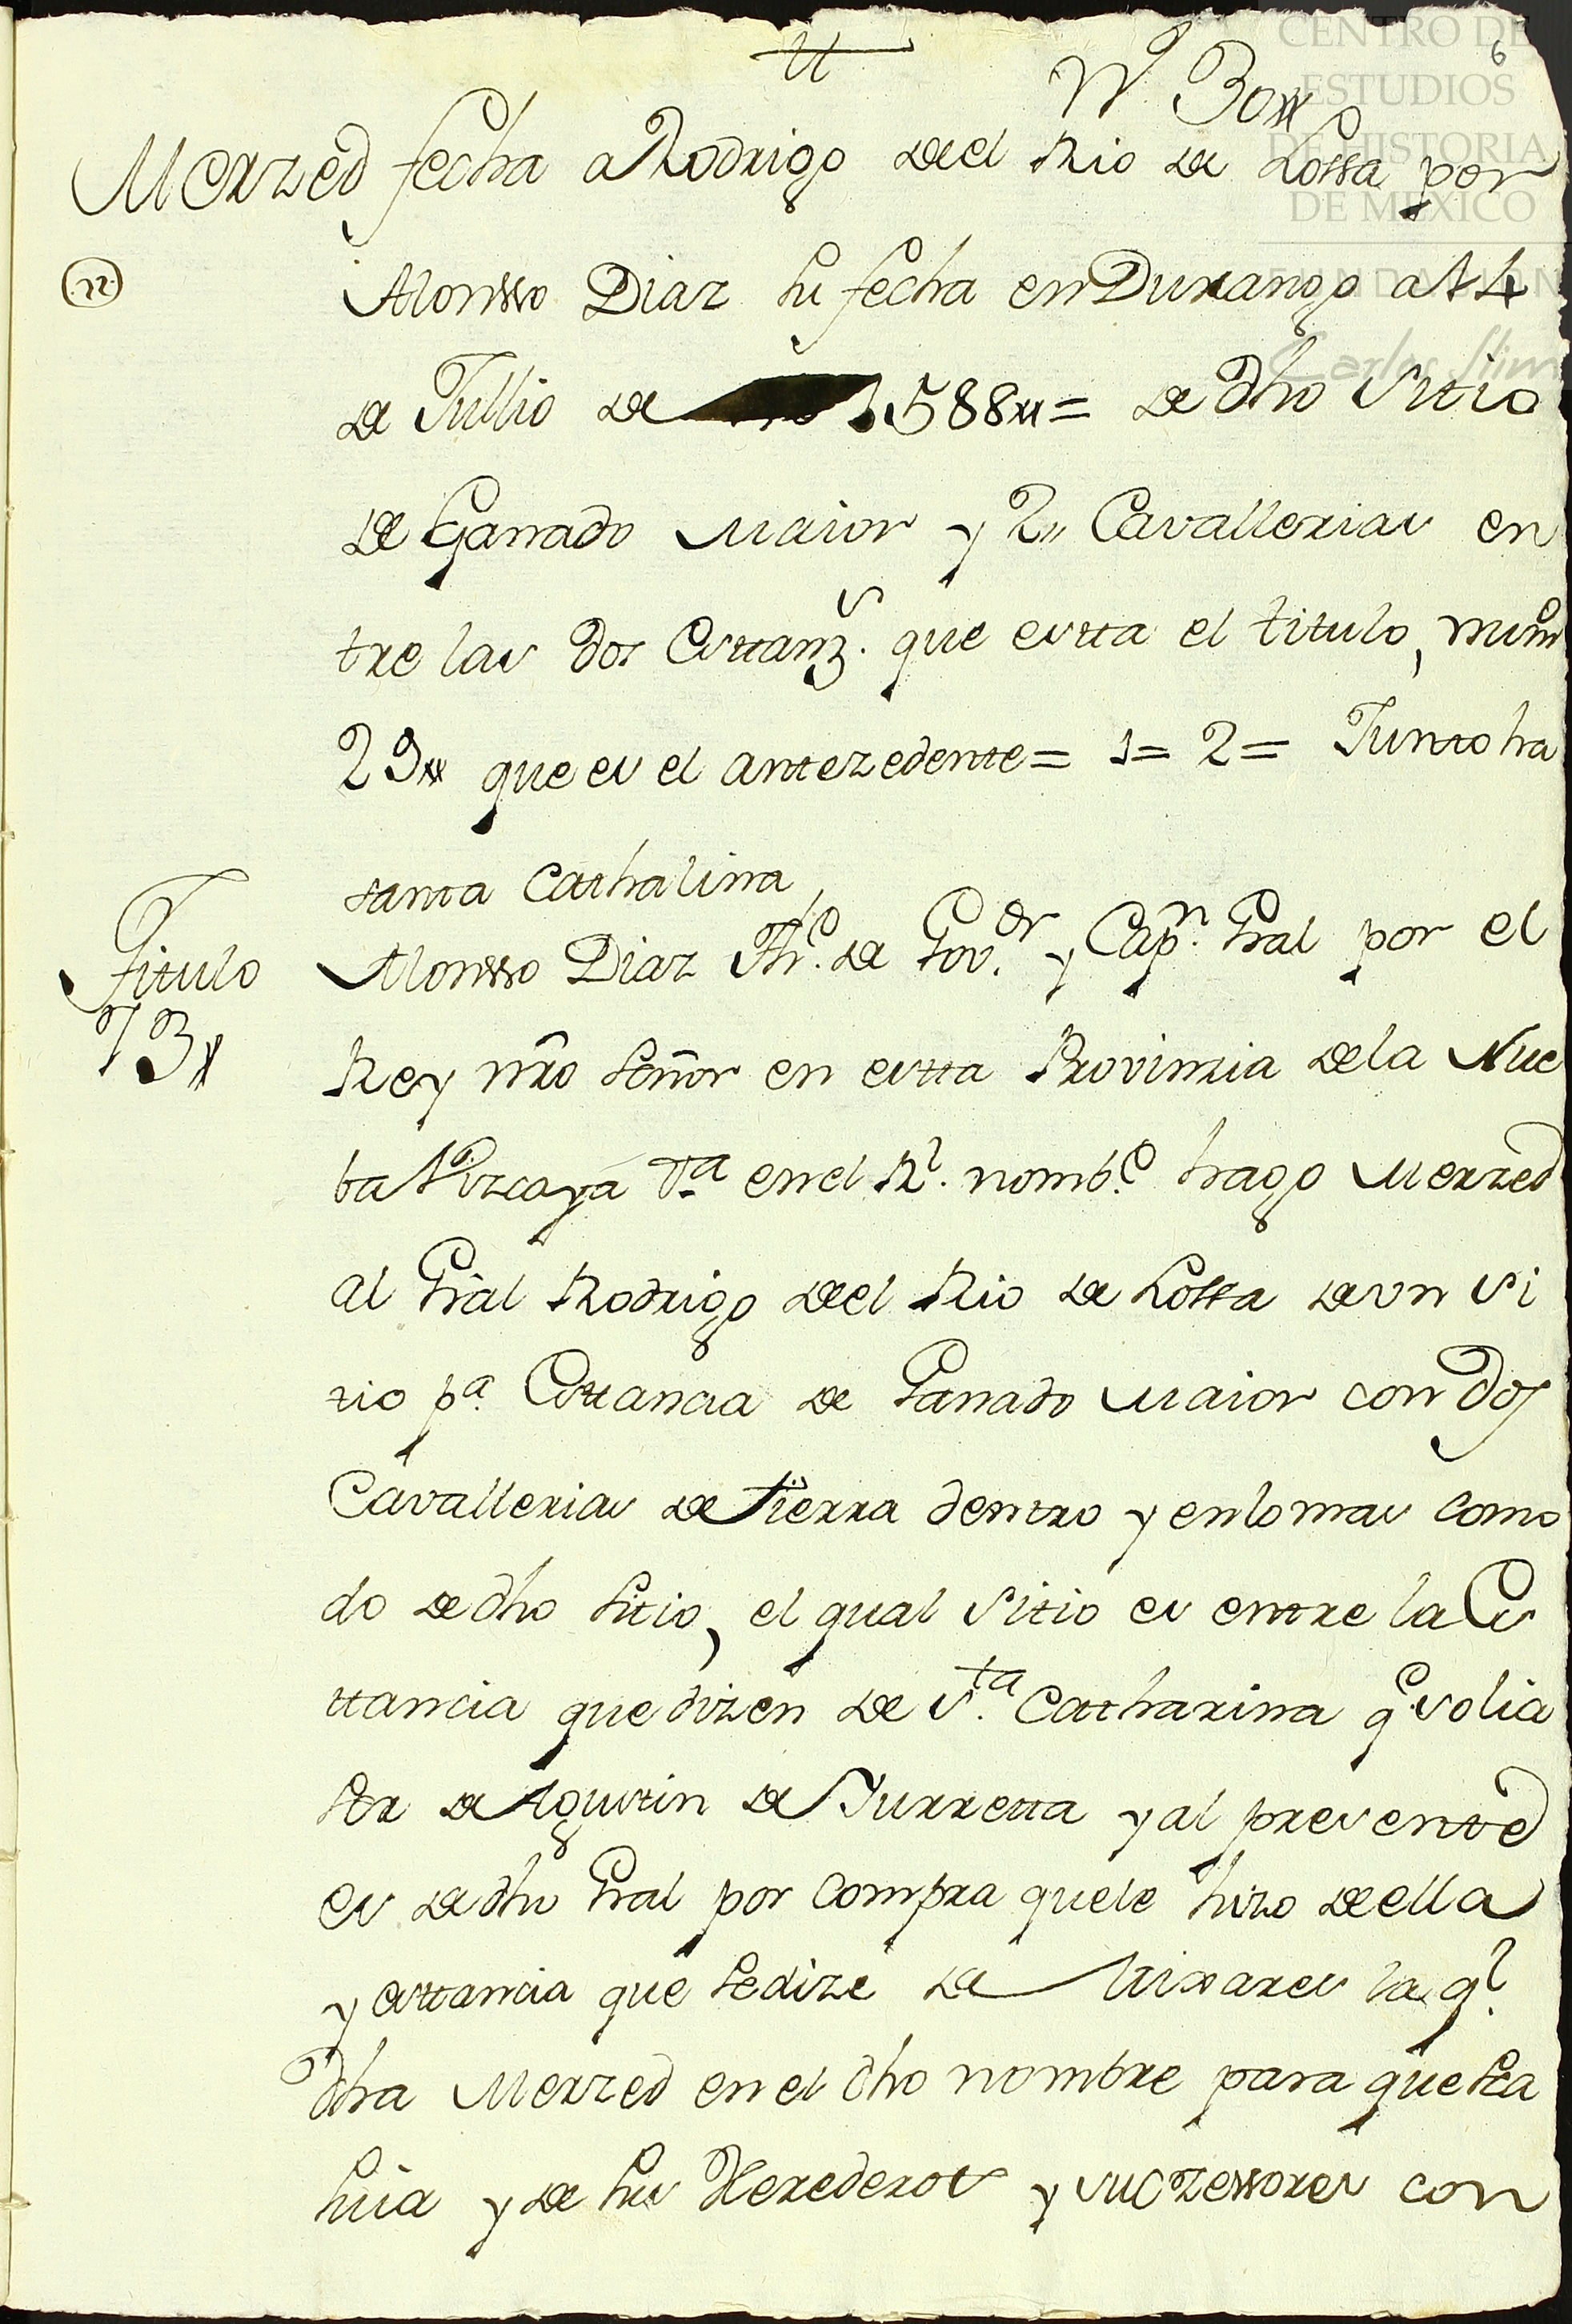 6
CENTRO DE
ESTUDIOS
DE HISTORIA
DE MEXICO
FUNDACION
Carlos Slim
N.º 30
Merzed fecha a Rodrigo del Rio de Lossa por
22
Alonsso Diaz su fecha en Durango a 14
de Jullio de 1588 = de dho sitio
de Ganado maior y 2,, Cavallerias en
tre las dos Esttanz.ˢ que cita el titulo, num
29 que es el antezedente = 1 = 2 = Junto ha
santa Cathalina
Titulo
73
Alonsso Diaz Th.ᵉ de Gov.ᵒʳ y Cap.ⁿ Gral por el
Rey nr̃o señor en estta Provinzia de la Nue
ba Vizcaya &.ª en el R.ˡ nomb.ᵉ hago Merzed
al Gral Rodrigo del Rio de Lossa de vn si
tio p.ª Esttancia de Ganado maior con dos
Cavallerias de tierra dentro y en lo mas como
do de dho sitio, el qual sitio es entre la Es
ttancia que dizen de S.ᵗᵃ Catharina q.ᵉ solia
ser de Agustin de Yurretta y al presente
es de dho Gral por compra que le hizo de ella
y esttancia que se dize de la q.ˡ
dha Merzed en el dho nombre para que sea
suia y de sus Herederos y suczessores con